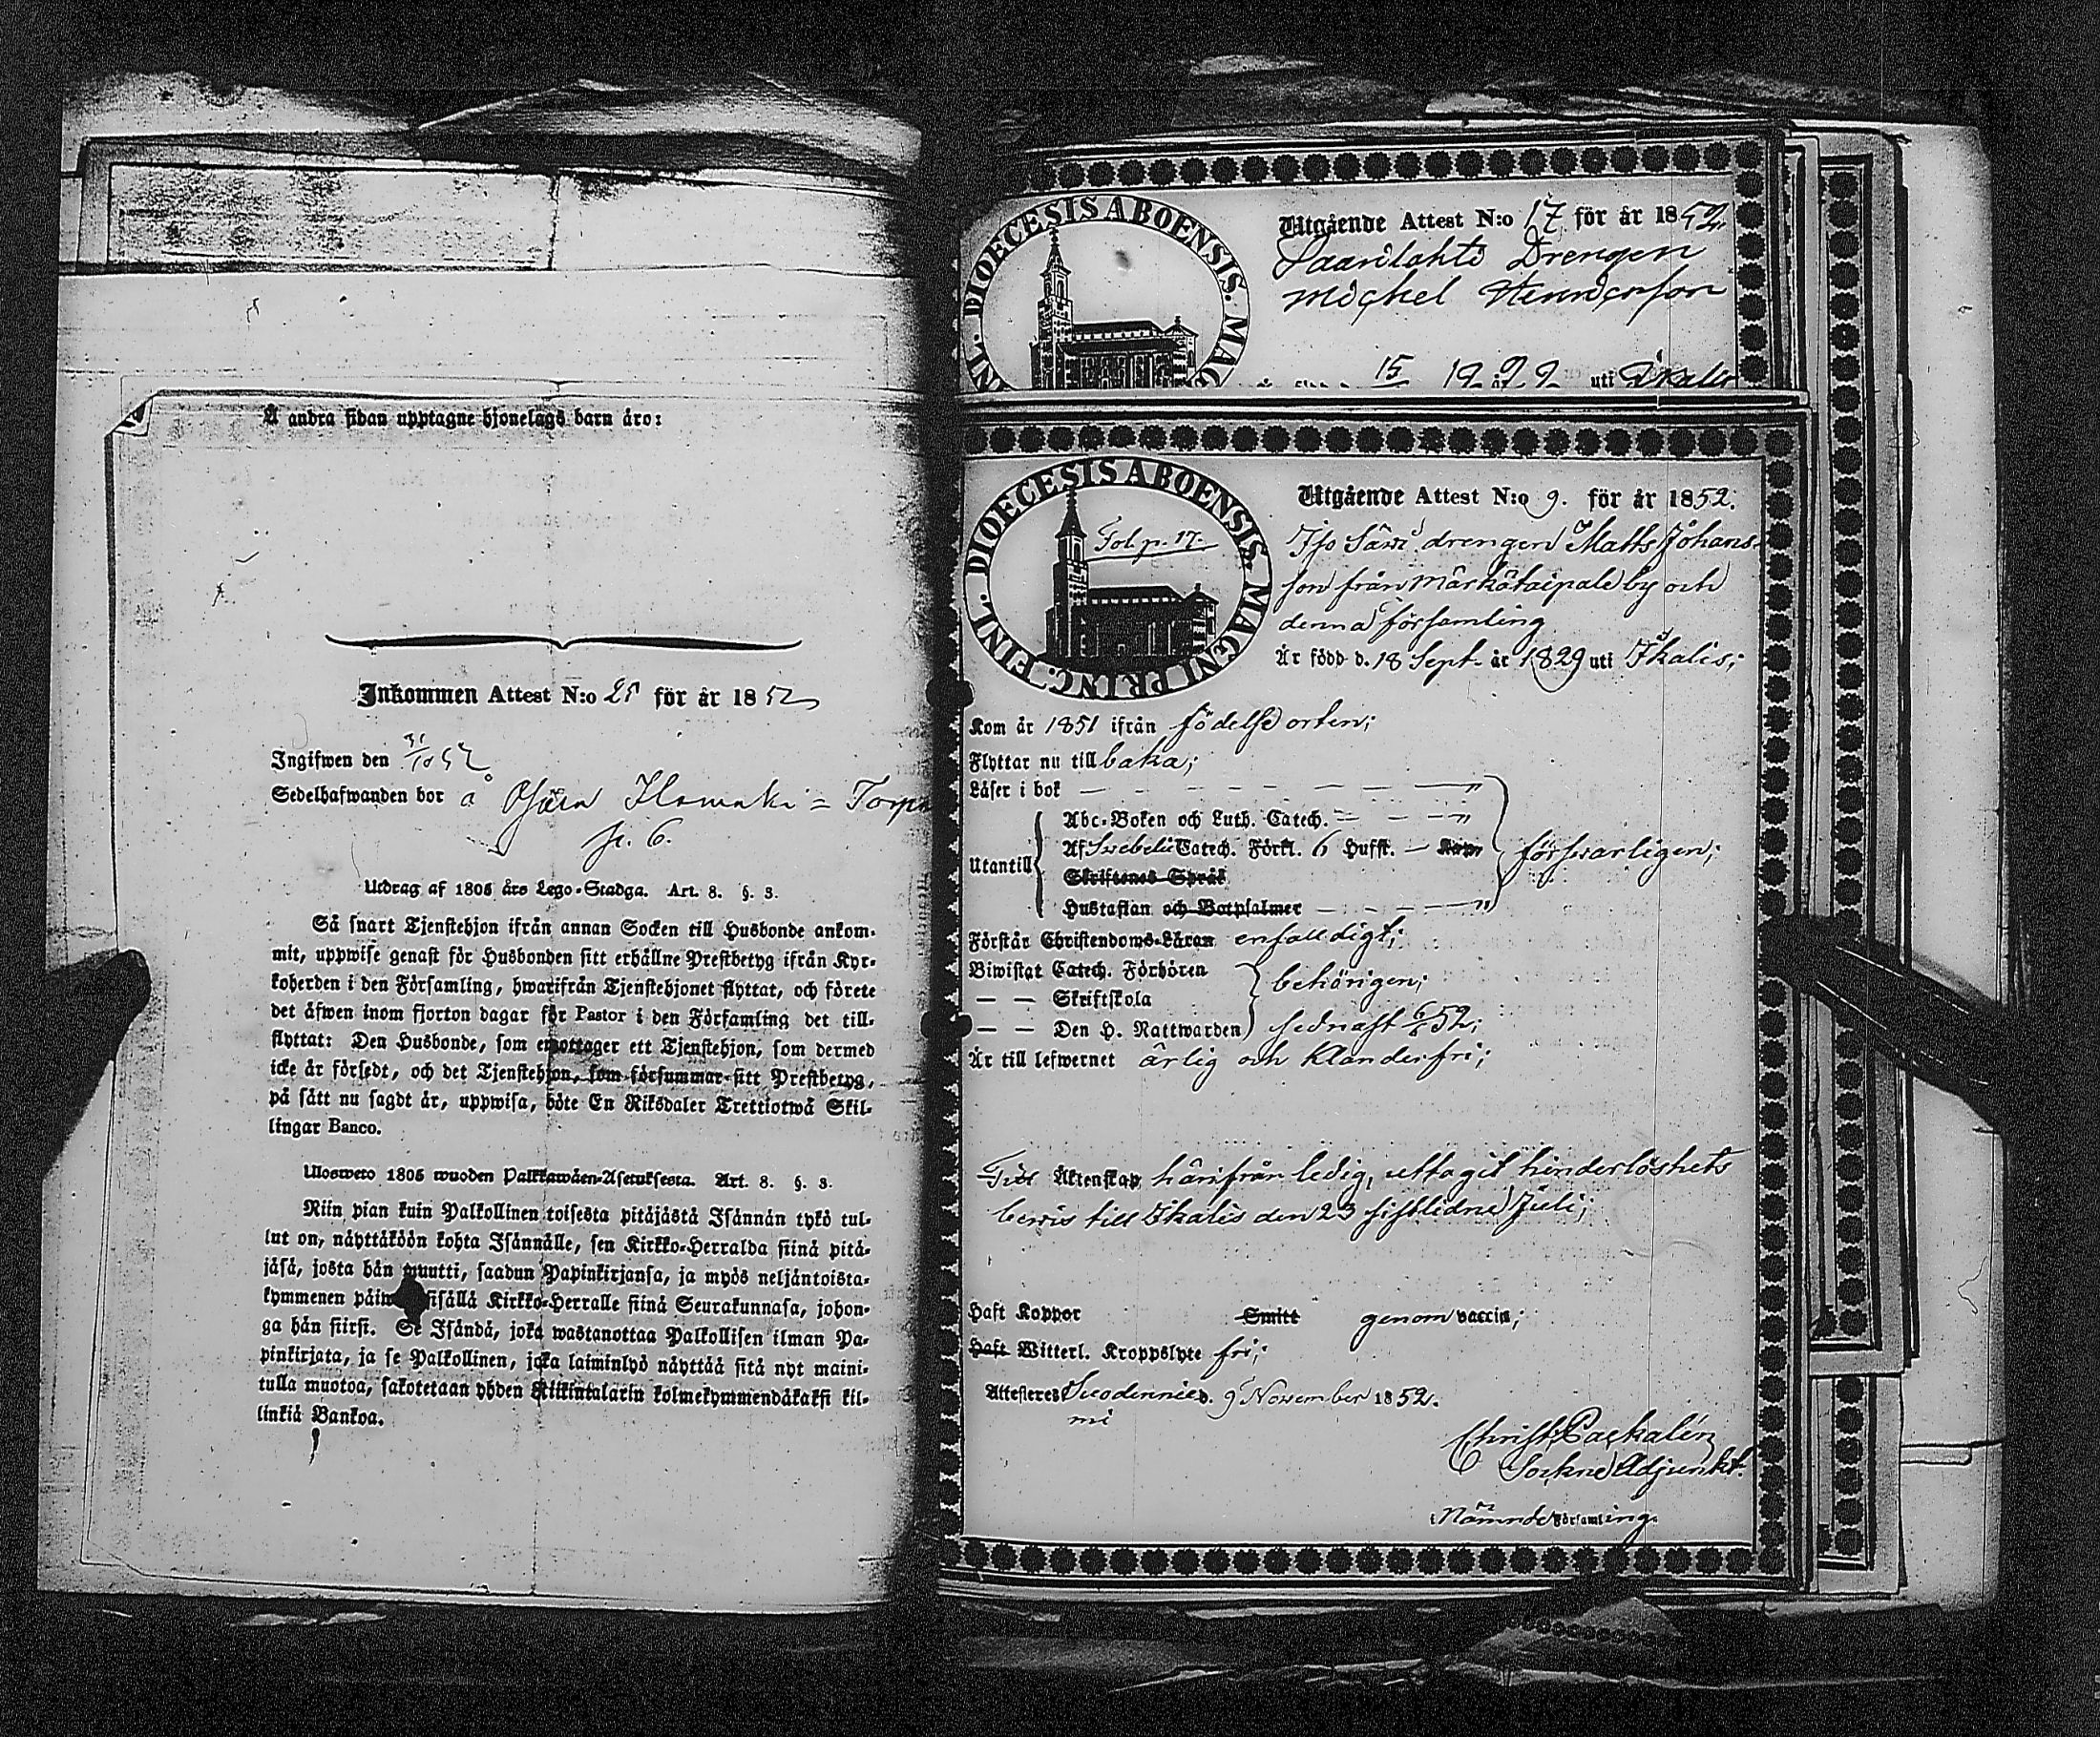 Å andra sidan upptagne hjonelags barn äro:
Inkommen Attest N:o 25 för år 1852
Ingifwen den 31/10 52
Sedelhafwanden bor å
p. 6.
Utdrag af 1805 års Lego-Stadga. Art. 8. §. 3.
Så snart Tjenstehjon ifrån annan Socken till Husbonde ankom-
mit, uppwise genast för Husbonden sitt erhållne Prestbetyg ifrån Kyr-
koherden i den Församling, hwarifrån Tjenstehjonet flyttat, och förete
det äfwen inom fjorton dagar för Pastor i den Församling det till-
flyttat: Den Husbonde, som emottager ett Tjenstehjon, som dermed
icke är försedt, och det Tjenstehjon, som försummar sitt Prestbetyg,
på sätt nu sagdt är, uppwisa, böte En Riksdaler Trettiotwå Skil-
lingar Banco.
Ulosweto 1805 wuoden Palkkawäen-Asetuksesta. Art. 8. §. 3.
Niin pian kuin Palkollinen toisesta pitäjästä Isännän tykö tul-
lut on, näyttäköön kohta Isännälle, sen Kirkko-Herralda siinä pitä-
jäsä, josta hän muutti, saadun Papinkirjansa, ja myös neljäntoista-
kymmenen päiw sisällä Kirkko-Herralle siinä Seurakunnasa, johon-
ga hän siirsi. Se Isändä, joka wastanottaa Palkollisen ilman Pa-
pinkirjata, ja se Palkollinen, joka laiminlyö näyttää sitä nyt maini-
tulla muotoa, sakotetaan yhden Riikintalarin kolmekymmendäkaksi kil-
linkiä Bankoa.
DIOECESIS ABOENSIS. MAG
FINL.
Utgående Attest N:o 17 för år 1852.
Saarilahti Drengen
Michel Henricsson
15 uti Ikalis
DIOECESIS ABOENSIS. MAGNI PRINC. FINL.
Fol. p. 17.
Utgående Attest N:o 9. för år 1852.
Iso Säwi drengen Matts Johans-
son från Märkätaipale by och
denna församling
Är född d. 18 Sept. år 1829 uti Ikalis;
Kom år 1851 ifrån födelse orten;
Flyttar nu till baka;
Läser i bok — — — — — — — "
Abc-Boken och Luth. Catech. — — — "
Utantill Af Swebelii Catech. Förkl. 6 Hufst. — försvarligen;
Skriftenes Språk
Hustaflan och Botpsalmer — — — — "
Förstår Christendoms-Läran enfalldigt;
Biwistat Catech. Förhören
— — Skriftskola behörigen;
— — Den H. Nattwarden sednast 6/6 52;
Är till lefwernet ärlig och klanderfri;
Till Äktenskap härifrån ledig, uttagit hinderlöshets
bewis till Ikalis den 23 sistlidne Juli;
Haft Koppor Smitt genom vaccin;
Haft Witterl. Kroppslyte fri;
Attesteres Suodennie- d. 9 November 1852.
mi
Christ. Packalén
Sockne Adjunkt.
i Nämnde Församling.